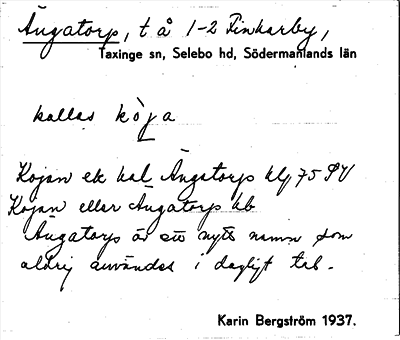 Ängatorp, t å 1-2 Finkarby,
Taxinge sn, Selebo hd, Södermanlands län
kallas kòja
Kojan ek kal Ängatorp hlf 75 SV
Kojan eller Ängatorp hb
Ängatorp är ett nytt namn som
aldrig användes i dagligt tal.
Karin Bergström 1937.